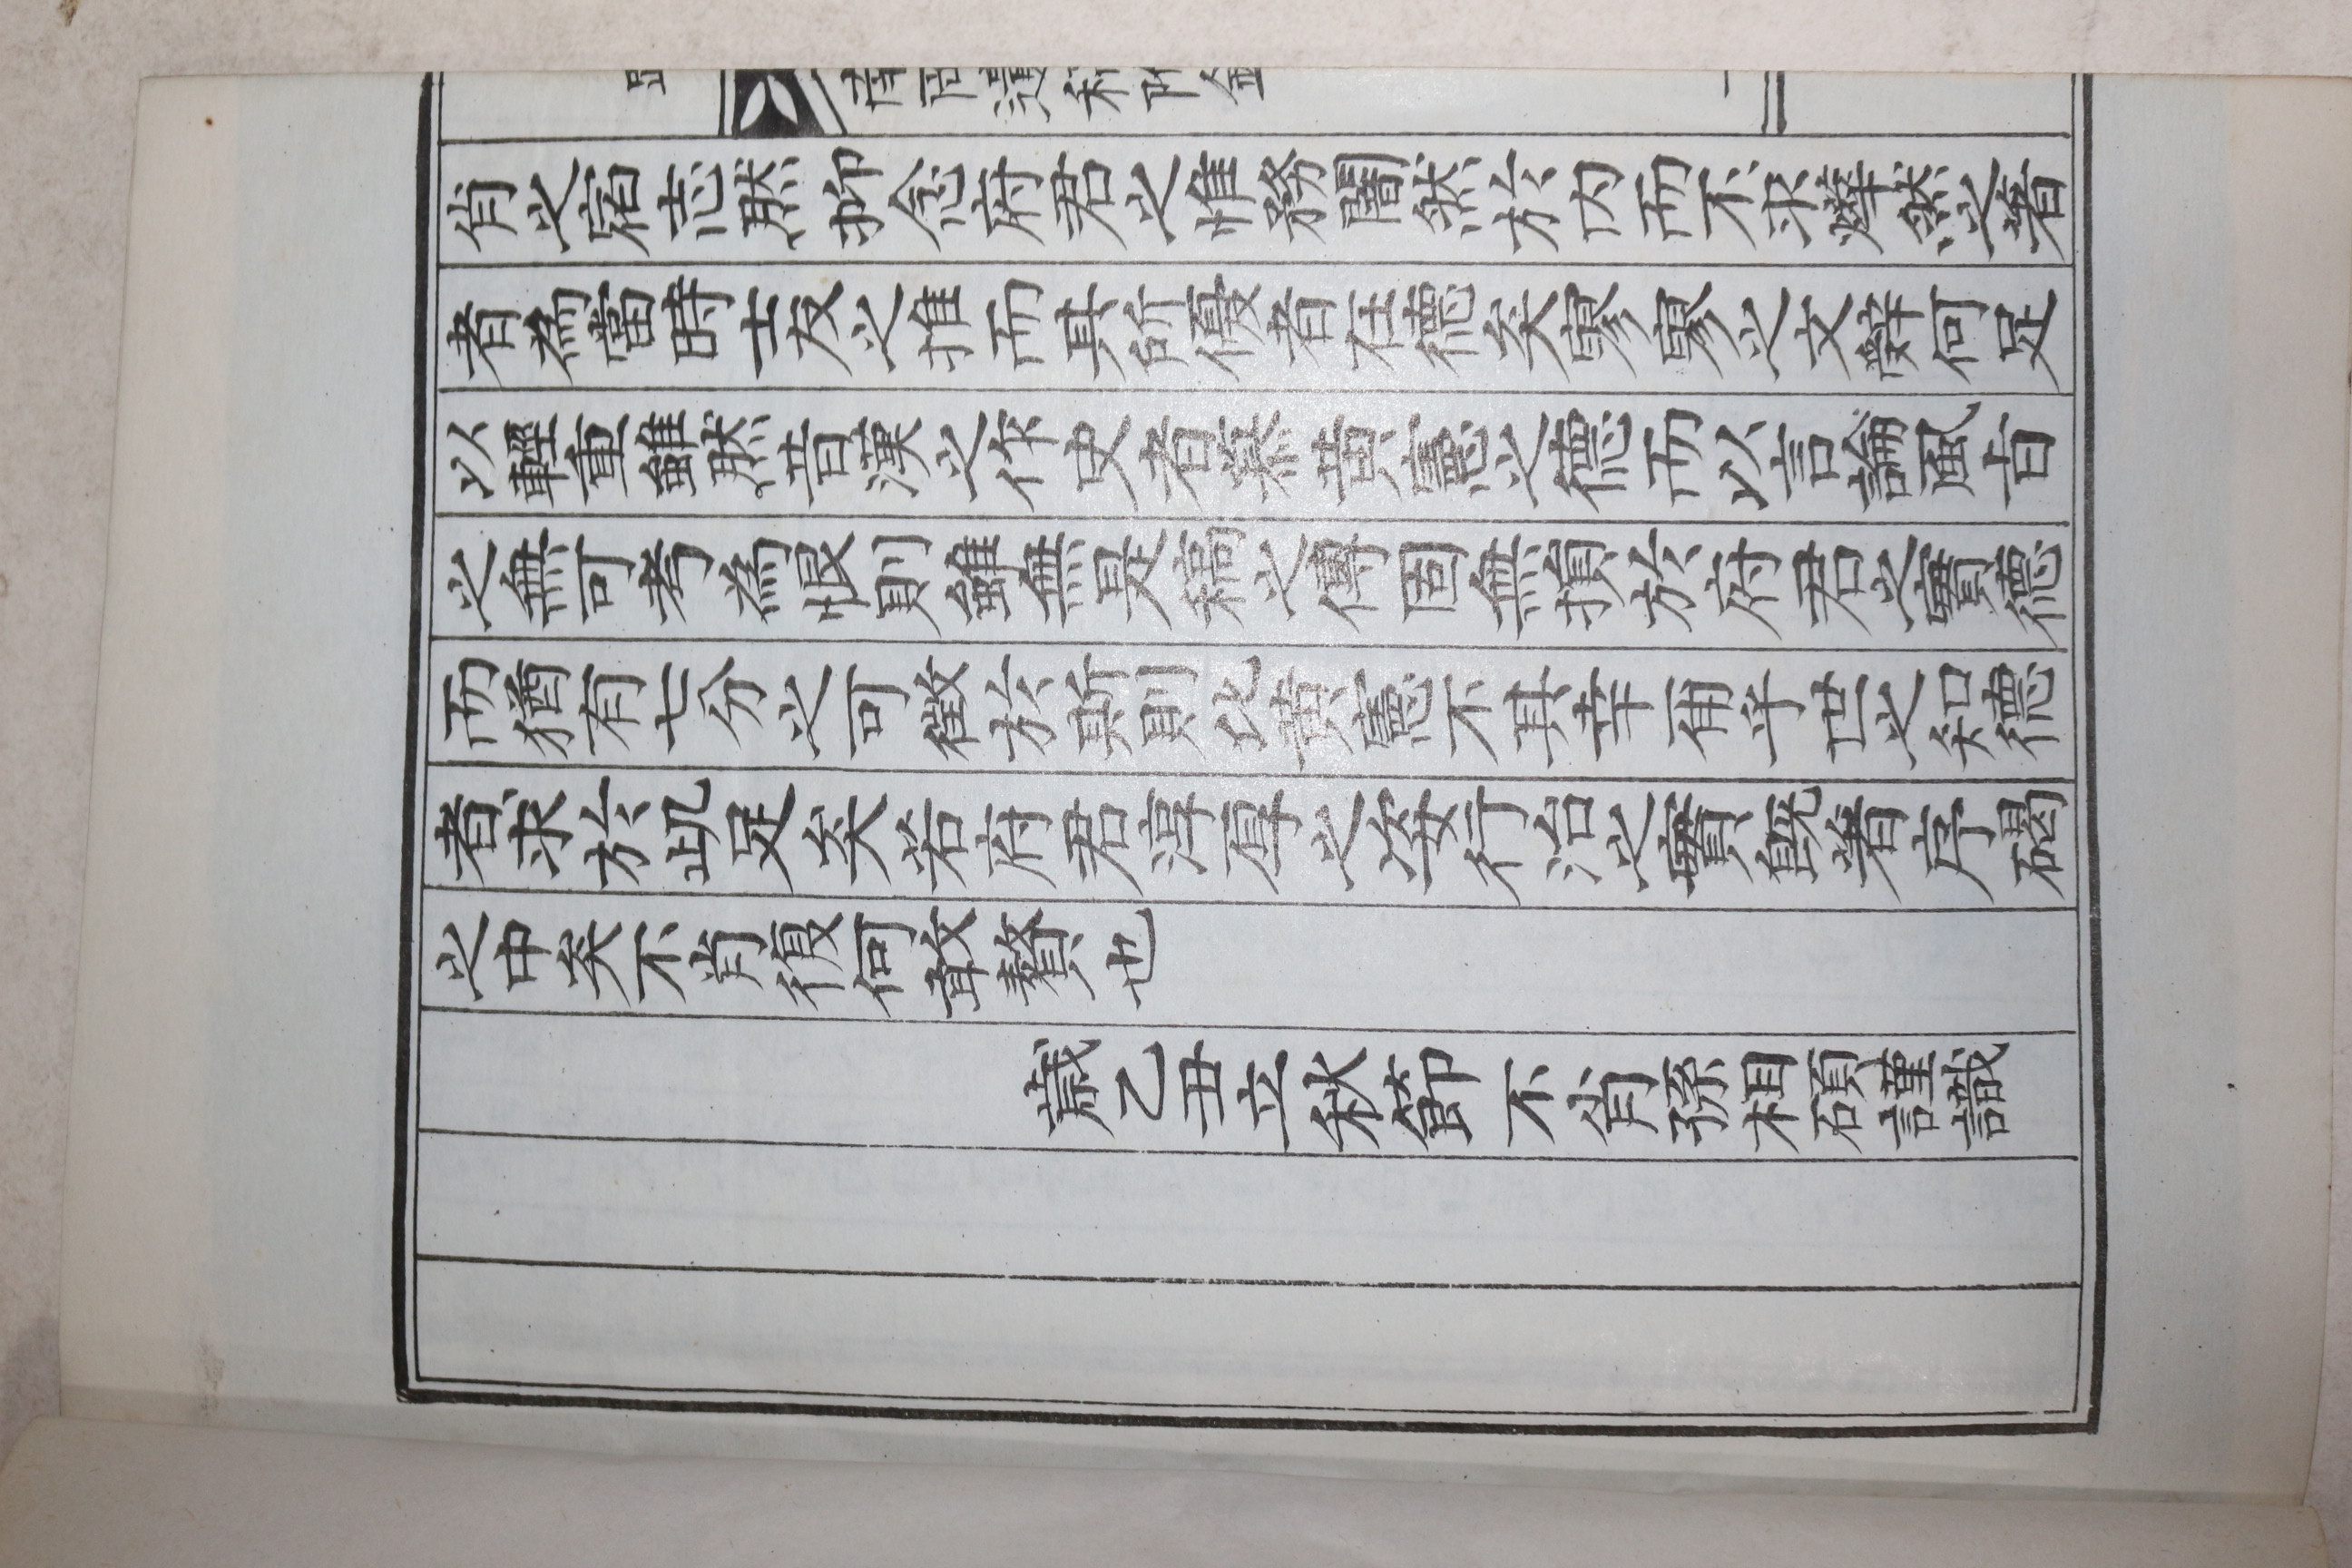 肖之宿志然抑念府君之惟務闇然於內而不求燁然之著
者爲當時士友之推而其所優者在德矣寥寥之文辭何足
以輕重雖然昔漢之作史者慕黃憲之德而以言論風旨
之無可考爲恨則雖無是稿之傳固無損於府君之實德
而猶有七分之可徵於斯則比黃憲不其幸乎世之知德
者求於此足矣若府君淳厚之姿行治之實既著序碣
之中矣不肖復何敢贅也
歲乙丑立秋節 不肖孫相碩謹識